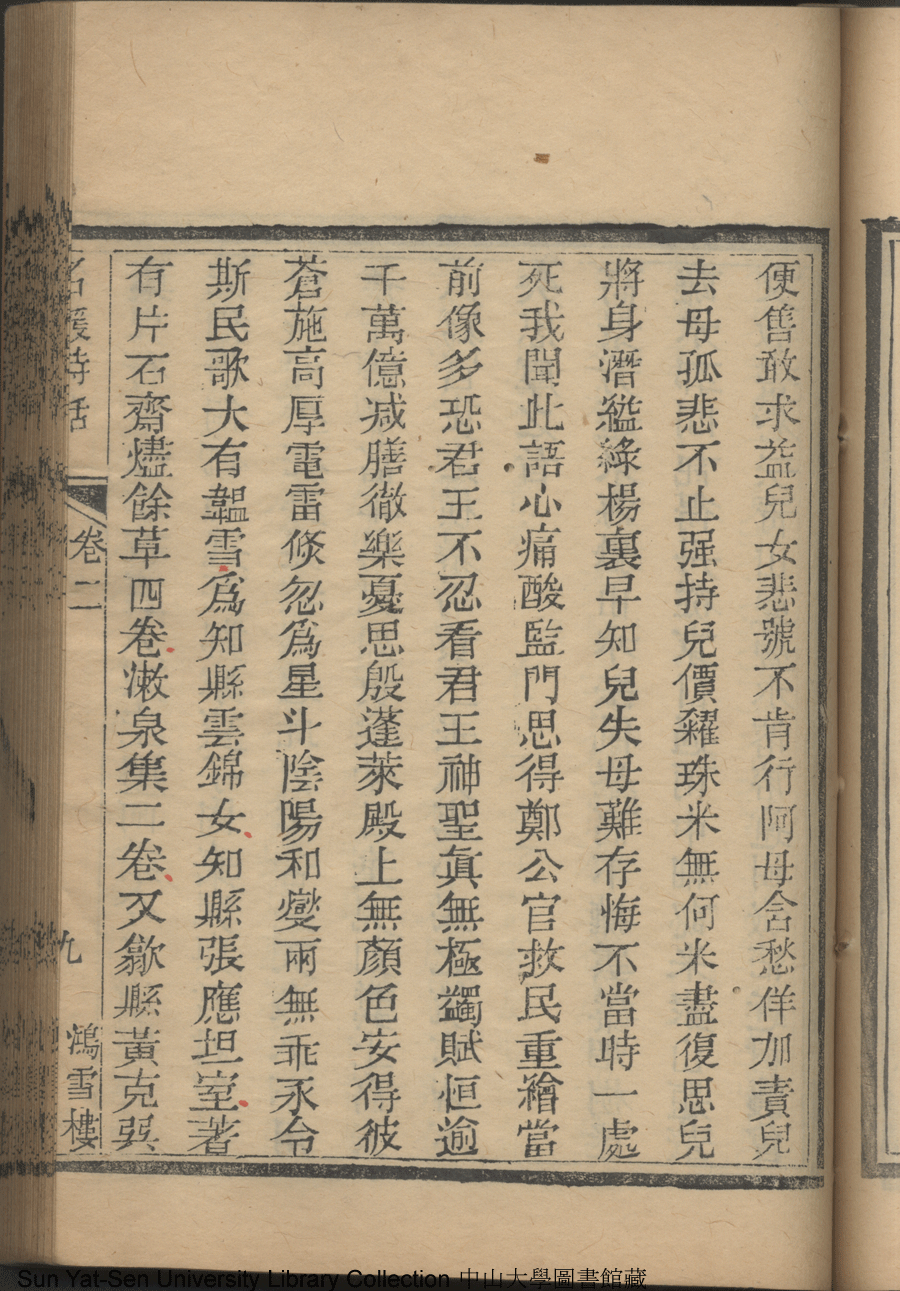 便售敢求益兒女悲號不肯行阿母含愁佯加責兒
去母孤悲不止强持兒價糴珠米無何米盡復思兒
將身潛縊綠楊裏早知兒失母難存悔不當時一處
死我聞此語心痛酸監門思得鄭公官救民重繪當
前像多恐君王不忍看君王神聖眞無極蠲賦恒逾
千萬億减膳徹樂憂思殷蓬萊殿上無顏色安得彼
蒼施高厚電雷倐忽爲星斗陰陽和燮雨無乖永令
斯民歌大有韞雪爲知縣雲錦女知縣張應坦室著
有片石齋燼餘草四卷潄泉集二卷又歙縣黃克巽
名媛詩話
卷二
九
鴻雪樓
Sun Yat-Sen University Library Collection 中山大學圖書館藏